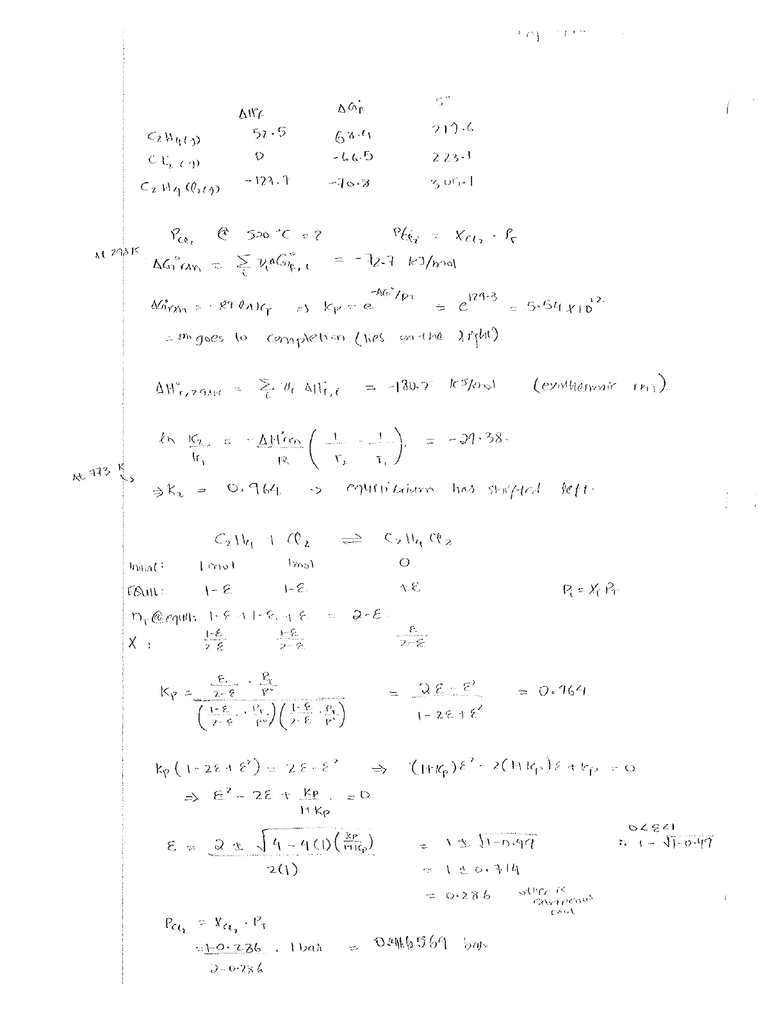 ΔH°f ΔG°f S°
C2H4(g) 52.5 68.4 219.6
Cl2(g) 0 -66.5 223.1
C2H4Cl2(g) -127.7 -70.8 305.1
PCl2 @ 500°C = ? PCl2 = XCl2 · PT
At 298K
ΔG°rxn = Σi νiΔG°f,i = -72.7 kJ/mol
ΔG°rxn = -RT ln Kp ⇒ Kp = e^(-ΔG°/RT) = e^(29.3) = 5.54 × 10^12
goes to completion (lies on the right)
ΔH°r,298K = Σi νi ΔH°f,i = -180.2 kJ/mol (exothermic rxn)
ln K2/K1 = -ΔH°rxn/R (1/T2 - 1/T1) = -29.38
At 773 K
⇒ K2 = 0.964 → equilibrium has shifted left.
C2H4 + Cl2 ⇌ C2H4Cl2
Initial: 1mol 1mol 0
EQUIL: 1-ε 1-ε +ε Pi = Xi PT
nT @ equil: 1-ε + 1-ε + ε = 2-ε
X: (1-ε)/(2-ε) (1-ε)/(2-ε) ε/(2-ε)
Kp = (ε/(2-ε) · PT/P°) / ((1-ε)/(2-ε) · PT/P°)((1-ε)/(2-ε) · PT/P°) = (2ε-ε²)/(1-2ε+ε²) = 0.964
Kp(1-2ε+ε²) = 2ε-ε² ⇒ (1+Kp)ε² - 2(1+Kp)ε + Kp = 0
⇒ ε² - 2ε + Kp/(1+Kp) = 0
0<ε<1
ε = (2 ± √(4-4(1)(Kp/(1+Kp))))/2(1) = 1 ± √(1-0.49) ∴ 1-√(1-0.49)
= 1 ± 0.714
= 0.286 other is extraneous root
PCl2 = XCl2 · PT
= (1-0.286)/(2-0.286) · 1 bar = bar